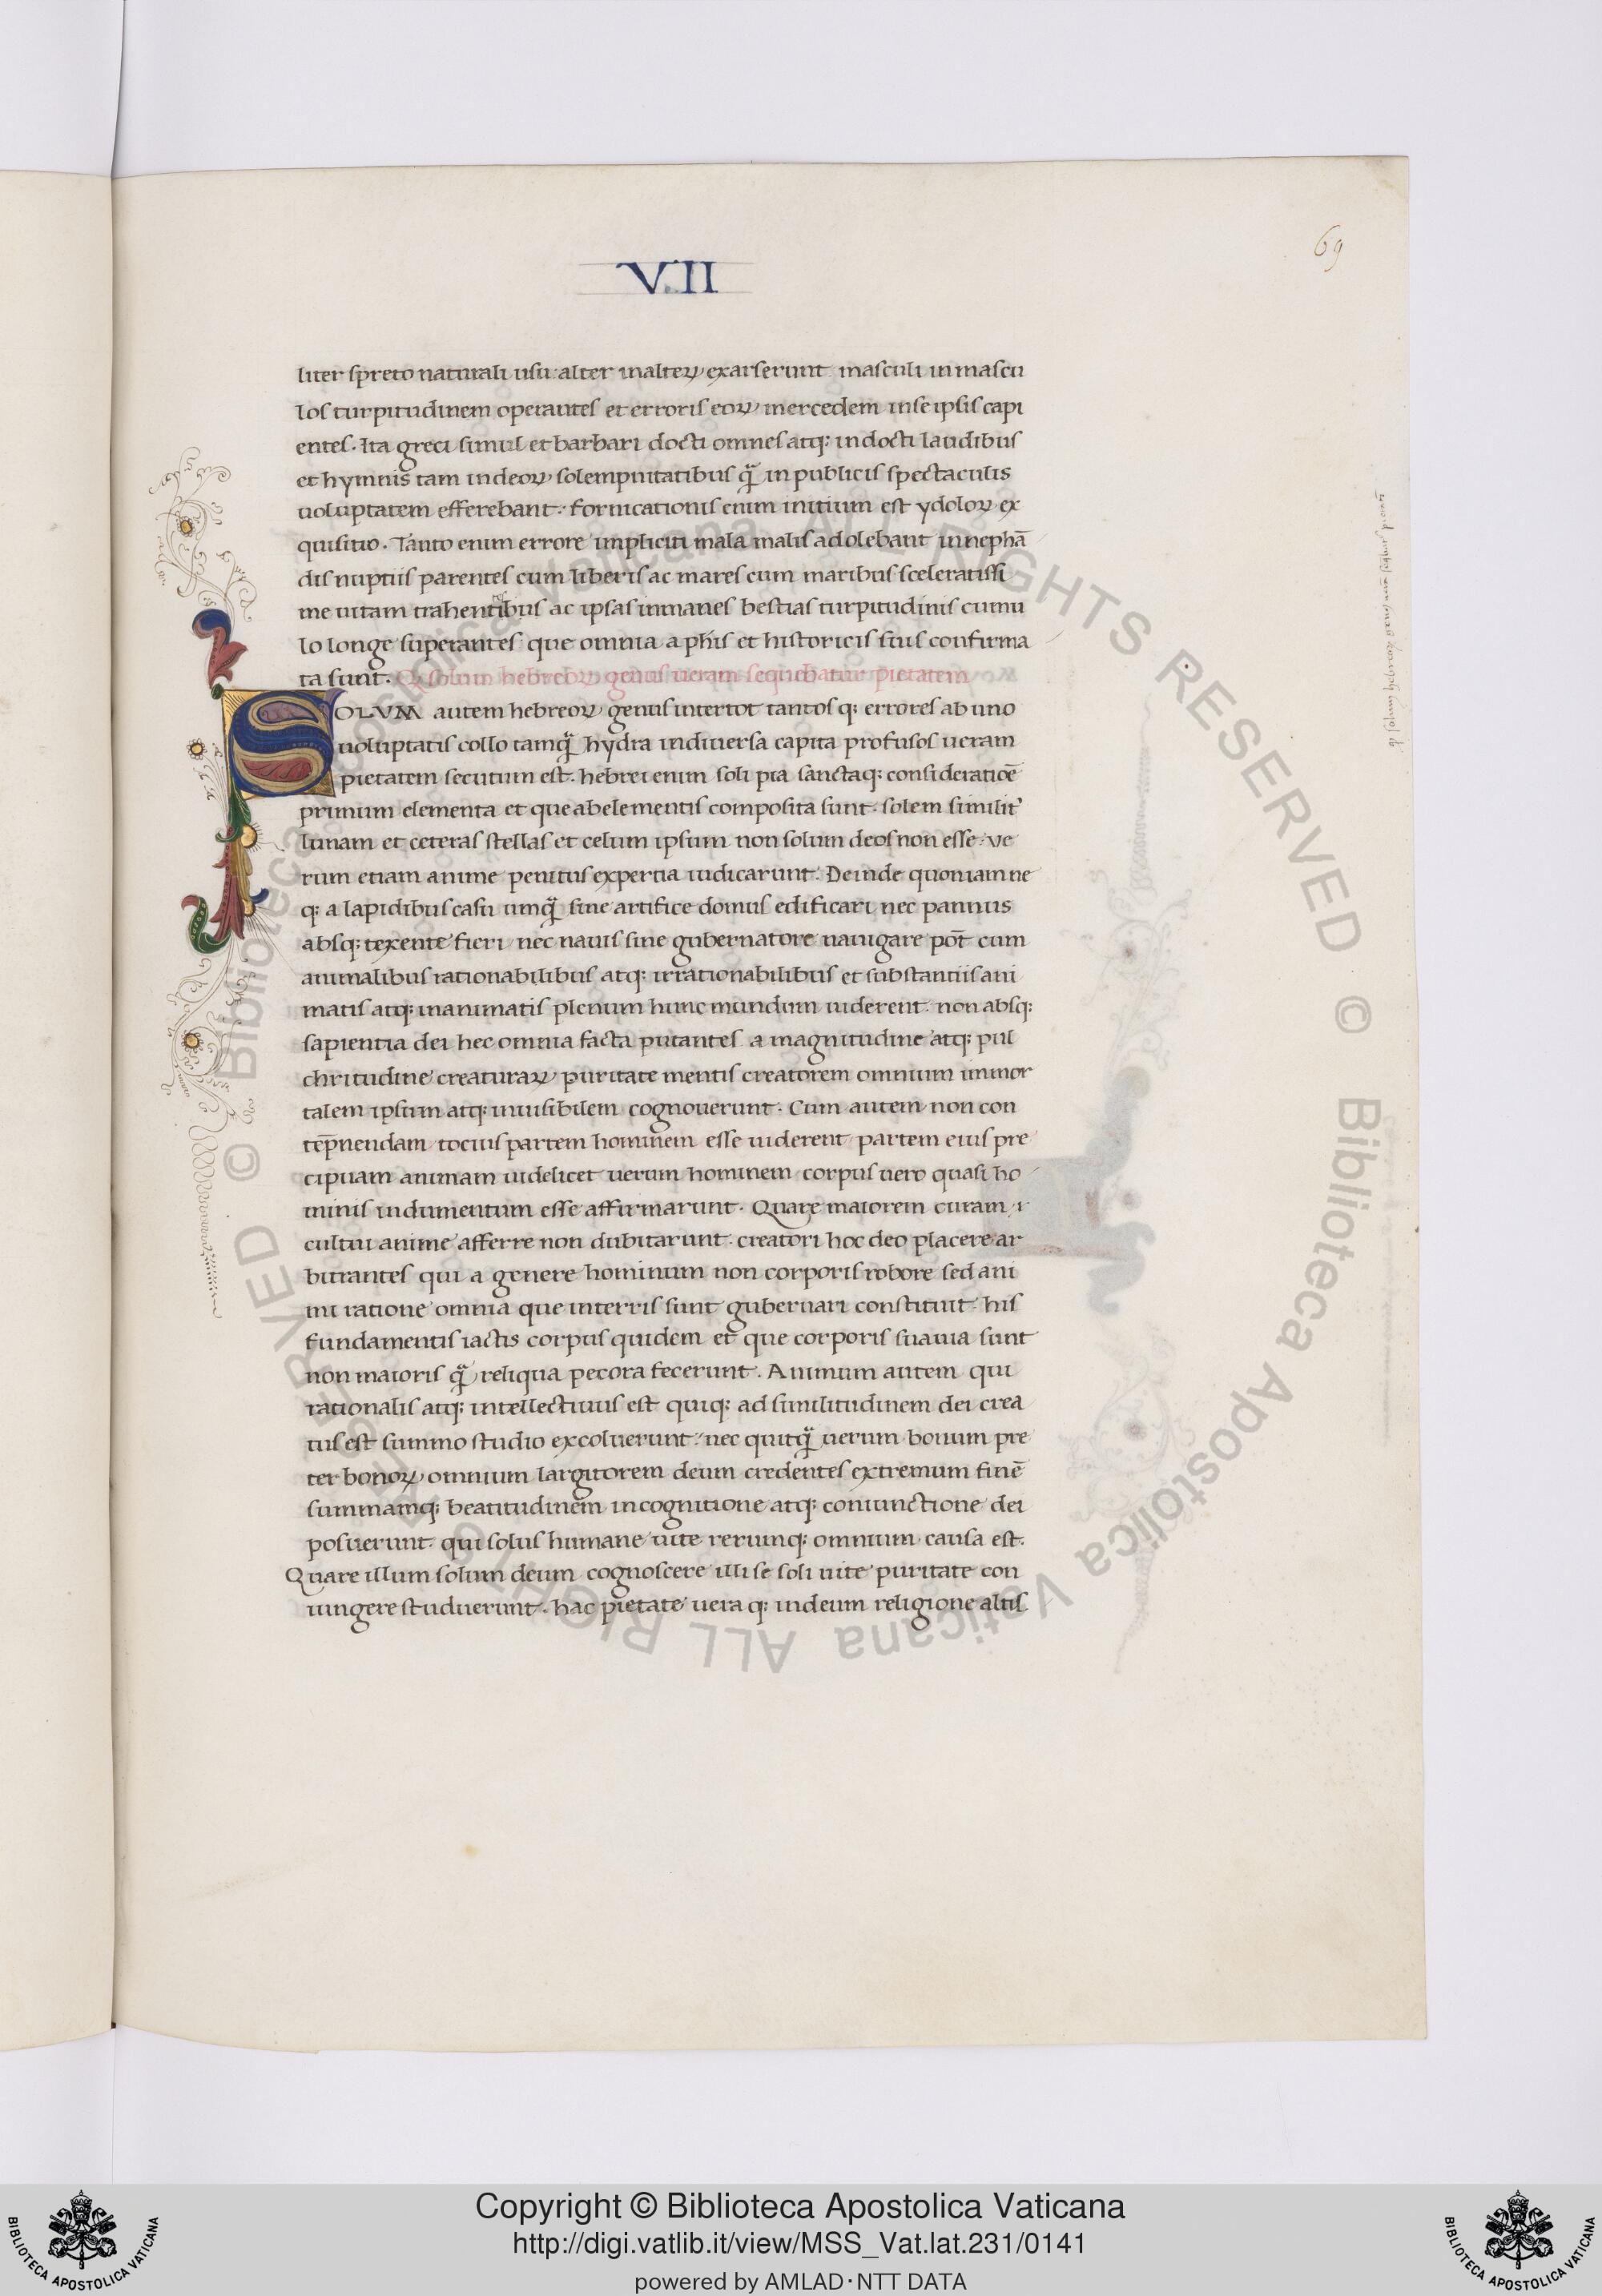 69
V.II
liter spreto naturali usu alter in alteꝝ exarserunt masculi in mascu
los turpitudinem operantes et erroris eoꝝ mercedem in se ipsis capi
entes. Ita greci simul et barbari docti omnes atq: indocti laudibus
et hymnis tam in deoꝝ solempnitatibus q̄ in publicis spectaculis
uoluptatem efferebant. fornicationis enim initium est ydoloꝝ ex
quisitio. Tanto enim errore impliciti mala malis adolebant in nephā
dis nuptiis parentes cum liberis ac mares cum maribus sceleratissi
me uitam trahentibus ac ipsas inmanes bestias turpitudinis cumu
lo longe superantes que omnia a phis et historicis suis confirma
ta sunt. Q solum hebreoꝝ genus ueram sequebatur pietatem
SOLVM autem hebreoꝝ genus inter tot tantos q: errores ab uno
uoluptatis collo tamq̄ hydra in diuersa capita profusos ueram
pietatem secutum est. hebrei enim soli pia sanctaq: consideratiōe
primum elementa et que ab elementis composita sunt. solem similit'
lunam et ceteras stellas et celum ipsum non solum deos non esse: ve
rum etiam anime penitus expertia iudicarunt. Deinde quoniam ne
q: a lapidibus casu umq̄ sine artifice domus edificari nec pannus
absq: texente fieri nec nauis sine gubernatore nauigare pōt cum
animalibus rationabilibus atq: irrationabilibus et substantiis ani
matis atq: inanimatis plenum hunc mundum uiderent. non absq:
sapientia dei hec omnia facta putantes a magnitudine atq: pul
chritudine creaturaꝝ puritate mentis creatorem omnium immor
talem ipsum atq: inuisibilem cognouerunt. Cum autem non con
tēpnendam tocius partem hominem esse uiderent partem eius pre
cipuam animam uidelicet uerum hominem corpus uero quasi ho
minis indumentum esse affirmarunt. Quare maiorem curam i
cultui anime afferre non dubitarunt. creatori hoc deo placere ar
bitrantes qui a genere hominum non corporis robore sed ani
mi ratione omnia que in terris sunt gubernari constituit. his
fundamentis iactis corpus quidem et que corporis suauia sunt
non maioris q̄ reliqua pecora fecerunt. Animum autem qui
rationalis atq: intellectiuus est quiq: ad similitudinem dei crea
tus est summo studio excoluerunt. nec quitq̄ uerum bonum pre
ter bonoꝝ omnium largitorem deum credentes extremum finē
summamq: beatitudinem in cognitione atq: coniunctione dei
posuerunt. qui solus humane uite rerumq: omnium causa est.
Quare illum solum deum cognoscere illi se soli uite puritate con
iungere studuerunt. hac pietate uera q: in deum religione altis
Copyright © Biblioteca Apostolica Vaticana
http://digi.vatlib.it/view/MSS_Vat.lat.231/0141
powered by AMLAD·NTT DATA
BIBLIOTECA APOSTOLICA VATICANA
BIBLIOTECA APOSTOLICA VATICANA
© Biblioteca Apostolica Vaticana ALL RIGHTS RESERVED
© Biblioteca Apostolica Vaticana ALL RIGHTS RESERVED